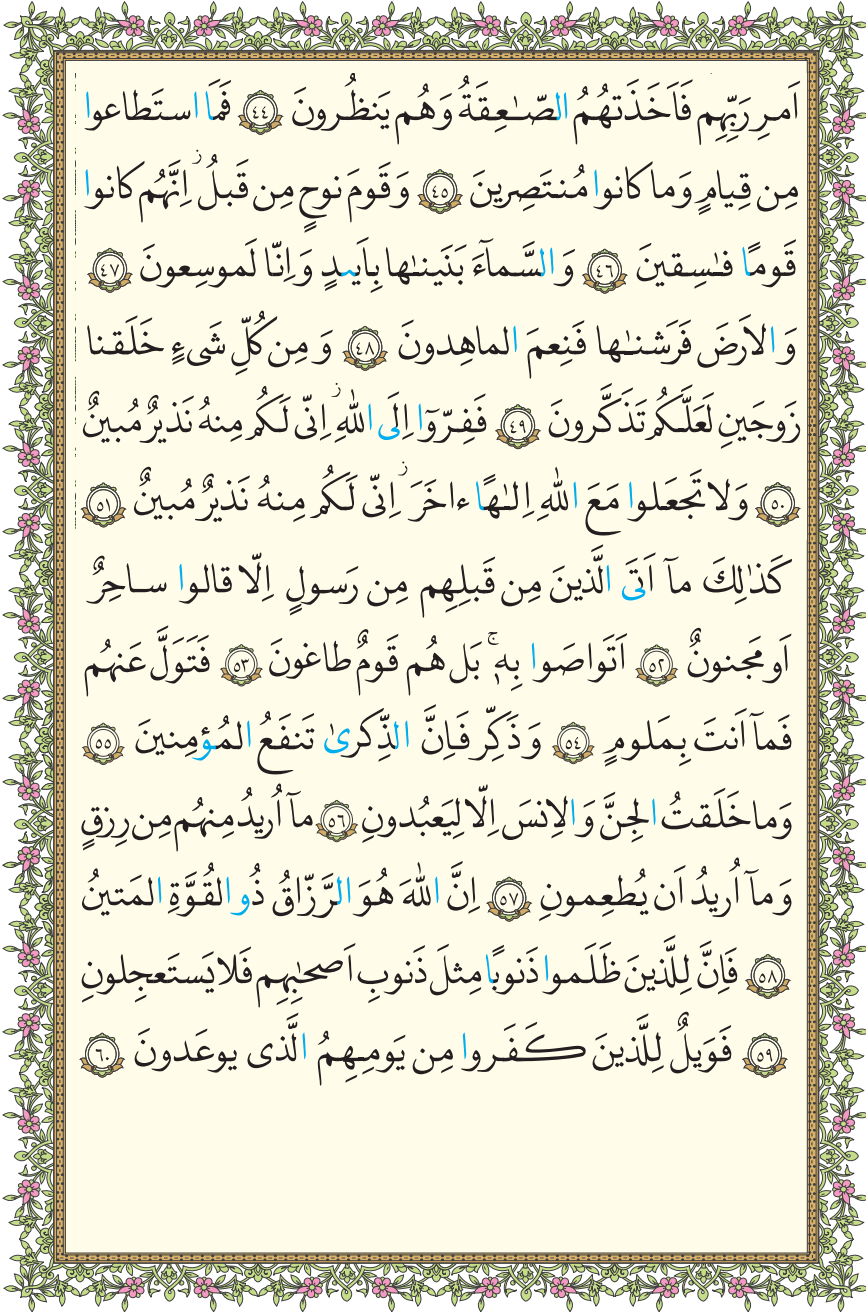 اَمرِ رَبِّهِم فَاَخَذَتهُمُ الصّـٰعِقَةُ وَهُم يَنظُرونَ ﴿٤٤﴾ فَمَا استَطاعوا
مِن قِيامٍ وَما كانوا مُنتَصِرينَ ﴿٤٥﴾ وَقَومَ نوحٍ مِن قَبلُ ز اِنَّهُم كانوا
قَومًا فـٰسِقينَ ﴿٤٦﴾ وَالسَّمآءَ بَنَينـٰها بِاَييدٍ وَاِنّا لَموسِعونَ ﴿٤٧﴾
وَالاَرضَ فَرَشنـٰها فَنِعمَ الماهِدونَ ﴿٤٨﴾ وَمِن كُلِّ شَىءٍ خَلَقنا
زَوجَينِ لَعَلَّكُم تَذَكَّرونَ ﴿٤٩﴾ فَفِرّوٓا اِلَى اللّٰهِ ز اِنّى لَكُم مِنهُ نَذيرٌ مُبينٌ
﴿٥٠﴾ وَلا تَجعَلوا مَعَ اللّٰهِ اِلـٰهًا ءاخَرَ ز اِنّى لَكُم مِنهُ نَذيرٌ مُبينٌ ﴿٥١﴾
كَذٰلِكَ مآ اَتَى الَّذينَ مِن قَبلِهِم مِن رَسولٍ اِلّا قالوا ساحِرٌ
اَو مَجنونٌ ﴿٥٢﴾ اَتَواصَوا بِهٖ ۚ بَل هُم قَومٌ طاغونَ ﴿٥٣﴾ فَتَوَلَّ عَنهُم
فَمآ اَنتَ بِمَلومٍ ﴿٥٤﴾ وَذَكِّر فَاِنَّ الذِّكرىٰ تَنفَعُ المُؤمِنينَ ﴿٥٥﴾
وَما خَلَقتُ الجِنَّ وَالاِنسَ اِلّا لِيَعبُدونِ ﴿٥٦﴾ مآ اُريدُ مِنهُم مِن رِزقٍ
وَمآ اُريدُ اَن يُطعِمونِ ﴿٥٧﴾ اِنَّ اللّٰهَ هُوَ الرَّزّاقُ ذُو القُوَّةِ المَتينُ
﴿٥٨﴾ فَاِنَّ لِلَّذينَ ظَلَموا ذَنوبًا مِثلَ ذَنوبِ اَصحٰبِهِم فَلا يَستَعجِلونِ
﴿٥٩﴾ فَوَيلٌ لِلَّذينَ كَفَروا مِن يَومِهِمُ الَّذى يوعَدونَ ﴿٦٠﴾